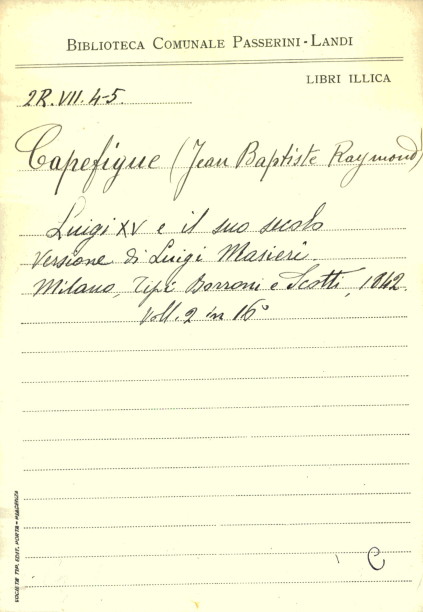 BIBLIOTECA COMUNALE PASSERINI-LANDI
LIBRI ILLICA
2R.VII.4-5.
Capefigue (Jean Baptiste Raymond)
Luigi XV e il suo secolo
Versione di Luigi Masieri.
Milano, Tipi Borroni e Scotti, 1842.
Voll. 2 in 16°
C
SOCIETÀ TIP. EDIT. PORTA - PIACENZA